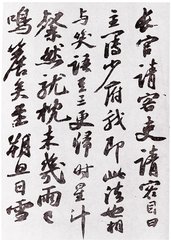 長官請客吏請客目曰
主簿少府我即此語也相
與笑語至三更歸時星斗
粲然就枕未幾雨已
鳴簷矣至朔旦日雪